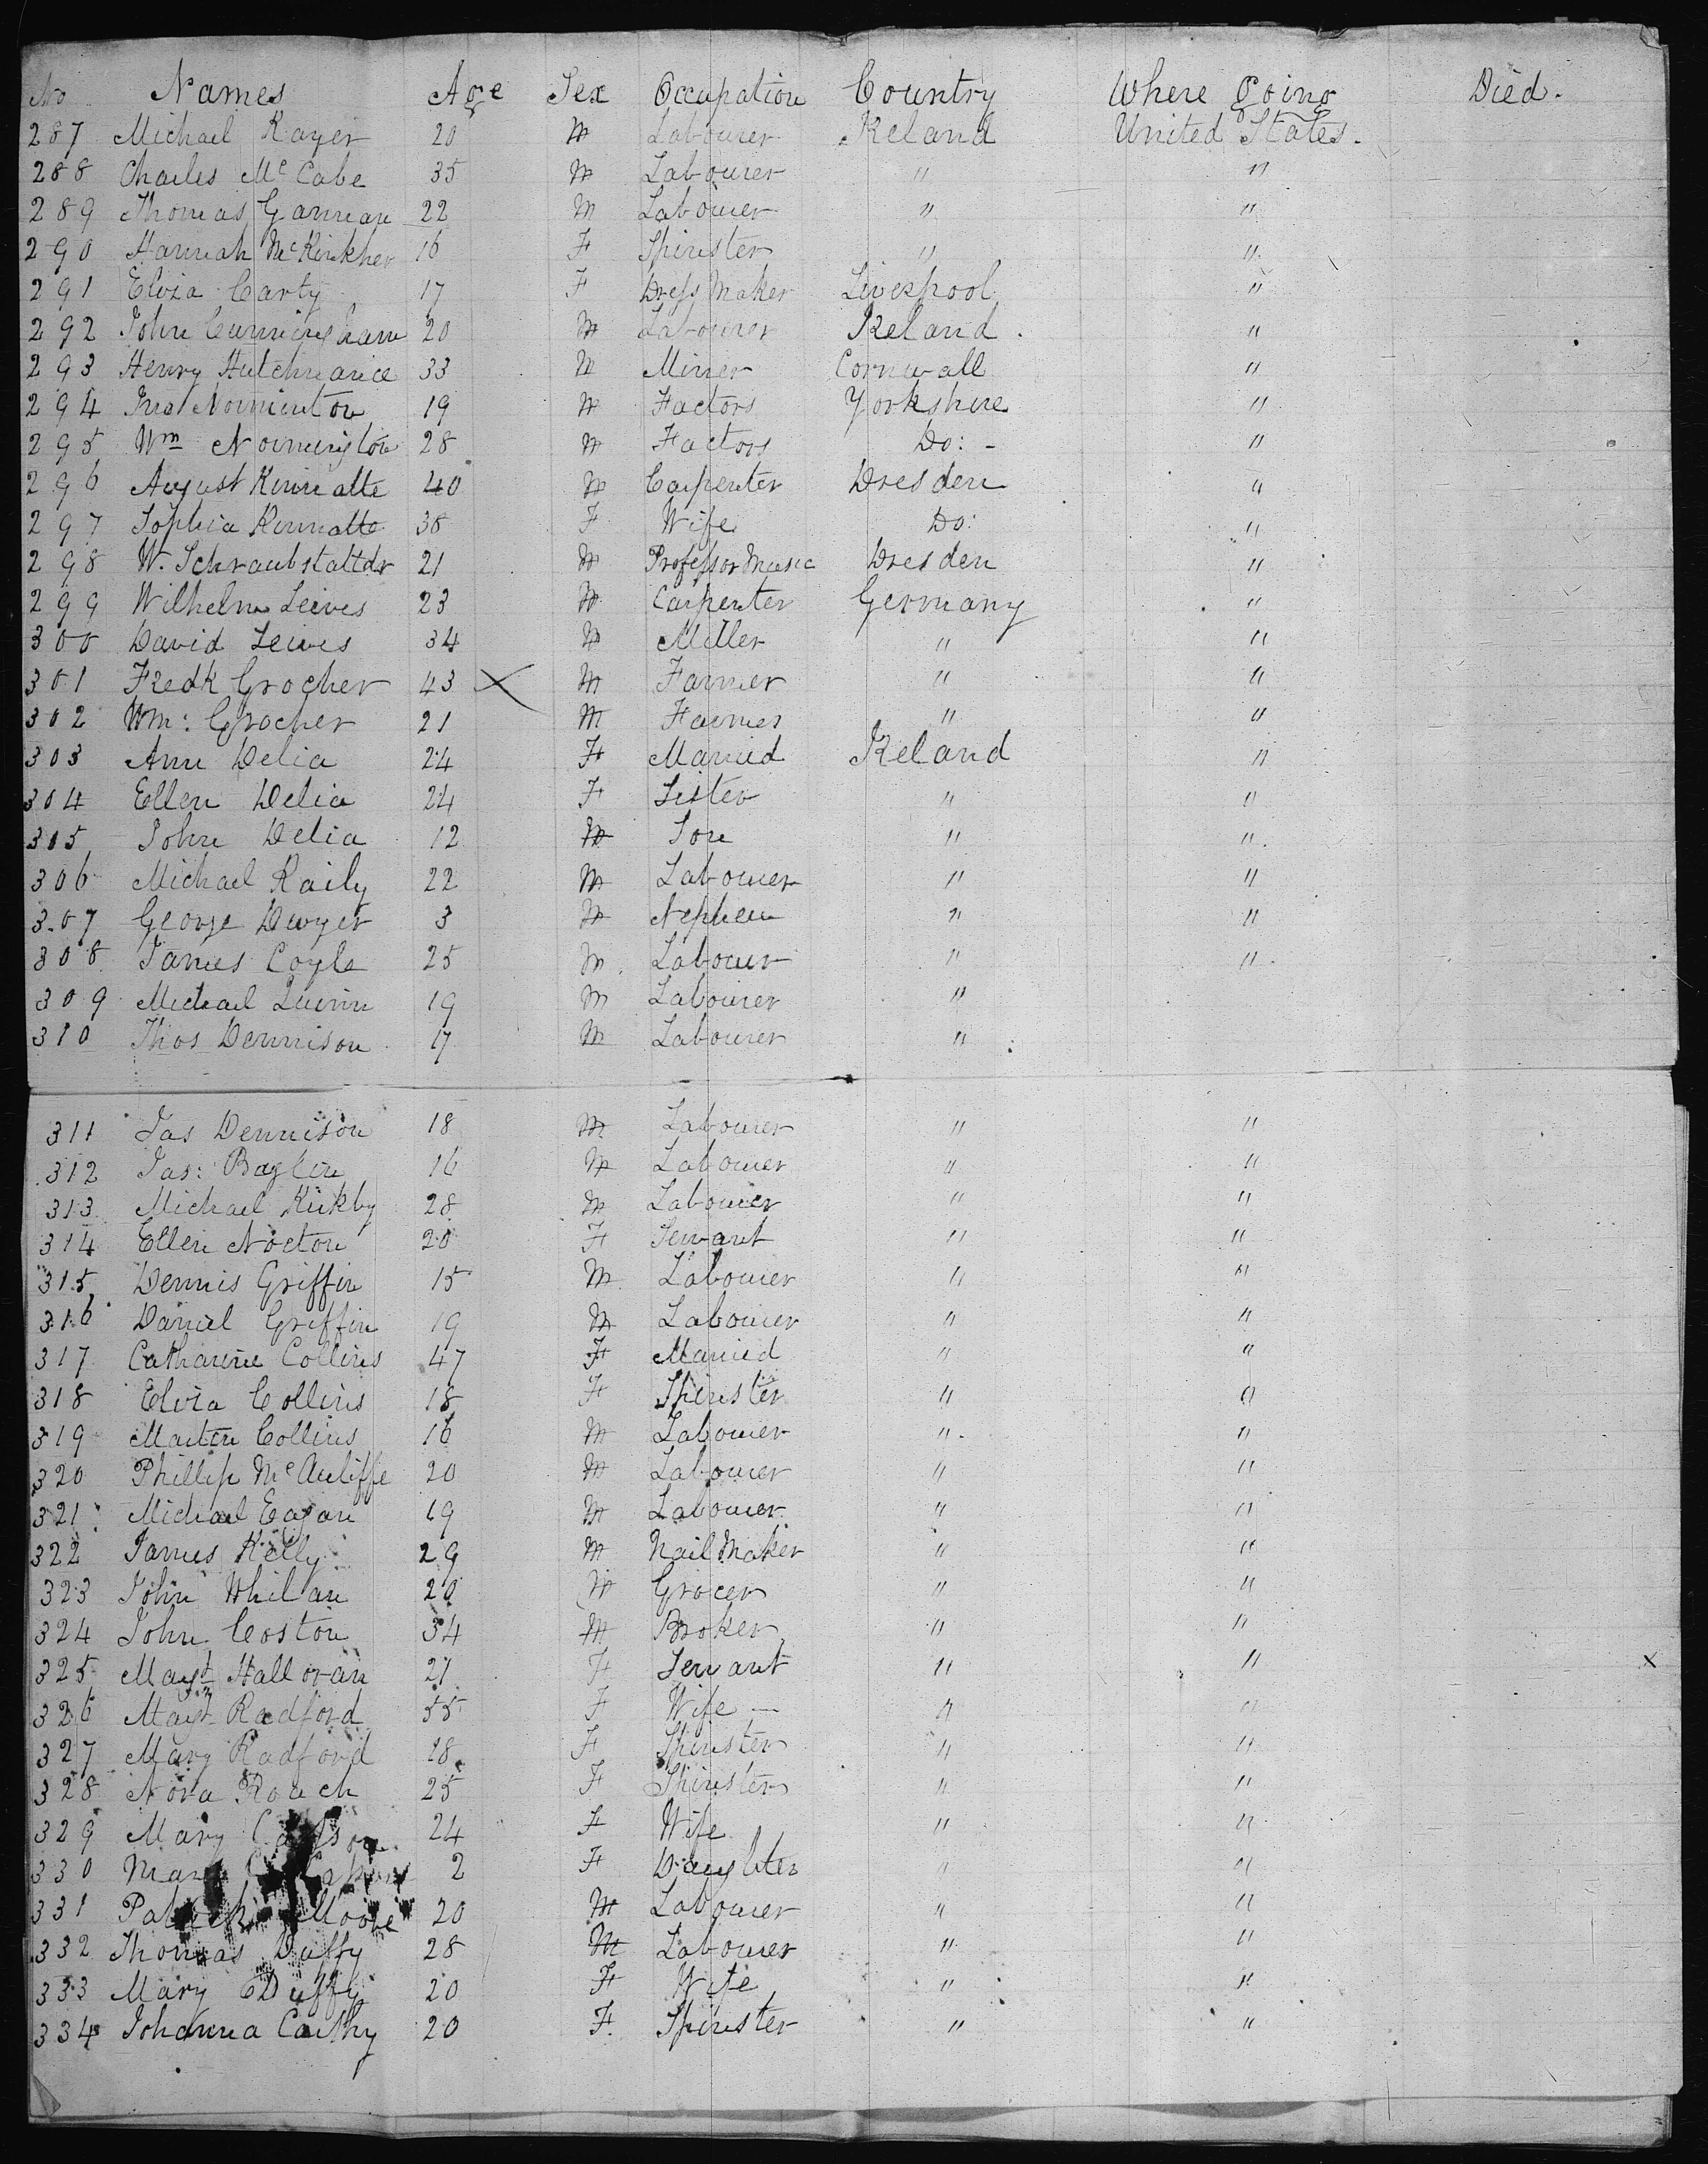 No Names Age Sex Occupation Country Where Going Died.
287 Michael Rayer 20 M Labourer Ireland United States.
288 Charles McCabe 35 M Labourer " "
289 Thomas Gannan 22 M Labourer " "
290 Hannah McKinkher 16 F Spinster " "
291 Eliza Carty 17 F Dress Maker Liverpool "
292 John Cunningham 20 M Labourer Ireland "
293 Henry 33 M Miner Cornwall "
294 Jno Normenton 19 M Factors Yorkshire "
295 Wm Normington 28 M Factors Do: - "
296 August Kinnalte 40 M Carpenter Dresden "
297 Sophia Kinnalte 38 F Wife Do: "
298 W. Schraubstattdr 21 M Professor Music Dresden "
299 Wilhelm Leives 23 M Carpenter Germany "
300 David Leives 34 M Miller " "
301 Fredk Grocher 43 X M Farmer " "
302 Wm: Grocher 21 M Farmer " "
303 Ann Delia 24 F Married Ireland "
304 Ellen Delia 24 F Sister " "
305 John Delia 12 M Son " "
306 Michael Raily 22 M Labourer " "
307 George Dwyer 3 M Nephew " "
308 James Coyle 25 M Labourer " "
309 Michael Quinn 19 M Labourer "
310 Thos Dennison 17 M Labourer "
311 Jas Dennison 18 M Labourer " "
312 Jas: Baglin 16 M Labourer " "
313 Michael Kirkby 28 M Labourer " "
314 Ellen Nocton 20 F Servant " "
315 Dennis Griffin 15 M Labourer " "
316 Daniel Griffin 19 M Labourer " "
317 Catharine Collins 47 F Married " "
318 Eliza Collins 18 F Spinster " "
319 Martin Collins 16 M Labourer " "
320 Phillip McAuliffe 20 M Labourer " "
321 Michael Eagan 19 M Labourer " "
322 James Kelly 29 M Nail Maker " "
323 John Whilan 20 M Grocer " "
324 John Coston 34 M Broker " "
325 Margt Halloran 21 F Servant " " x
326 Margt Radford 55 F Wife — " "
327 Mary Radford 18 F Spinster " "
328 Nora Roach 25 F Spinster " "
329 Mary 24 F Wife " "
330 Mary 2 F Daughter " "
331 Patrick Moore 20 M Labourer " "
332 Thomas Duffy 28 M Labourer " "
333 Mary Duffy 20 F Wife " "
334 Johanna Cathy 20 F. Spinster " "